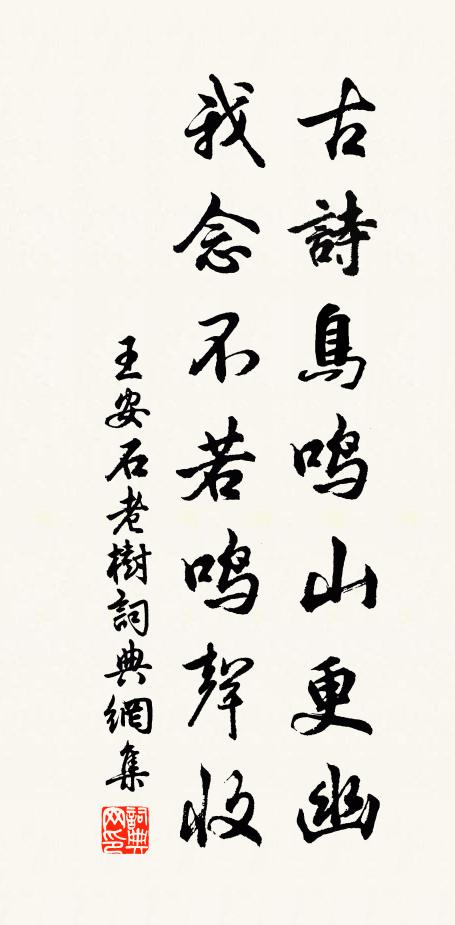 古詩鳥鳴山更幽
我念不若鳴聲收
王安石老樹詞典網集
詞典网印